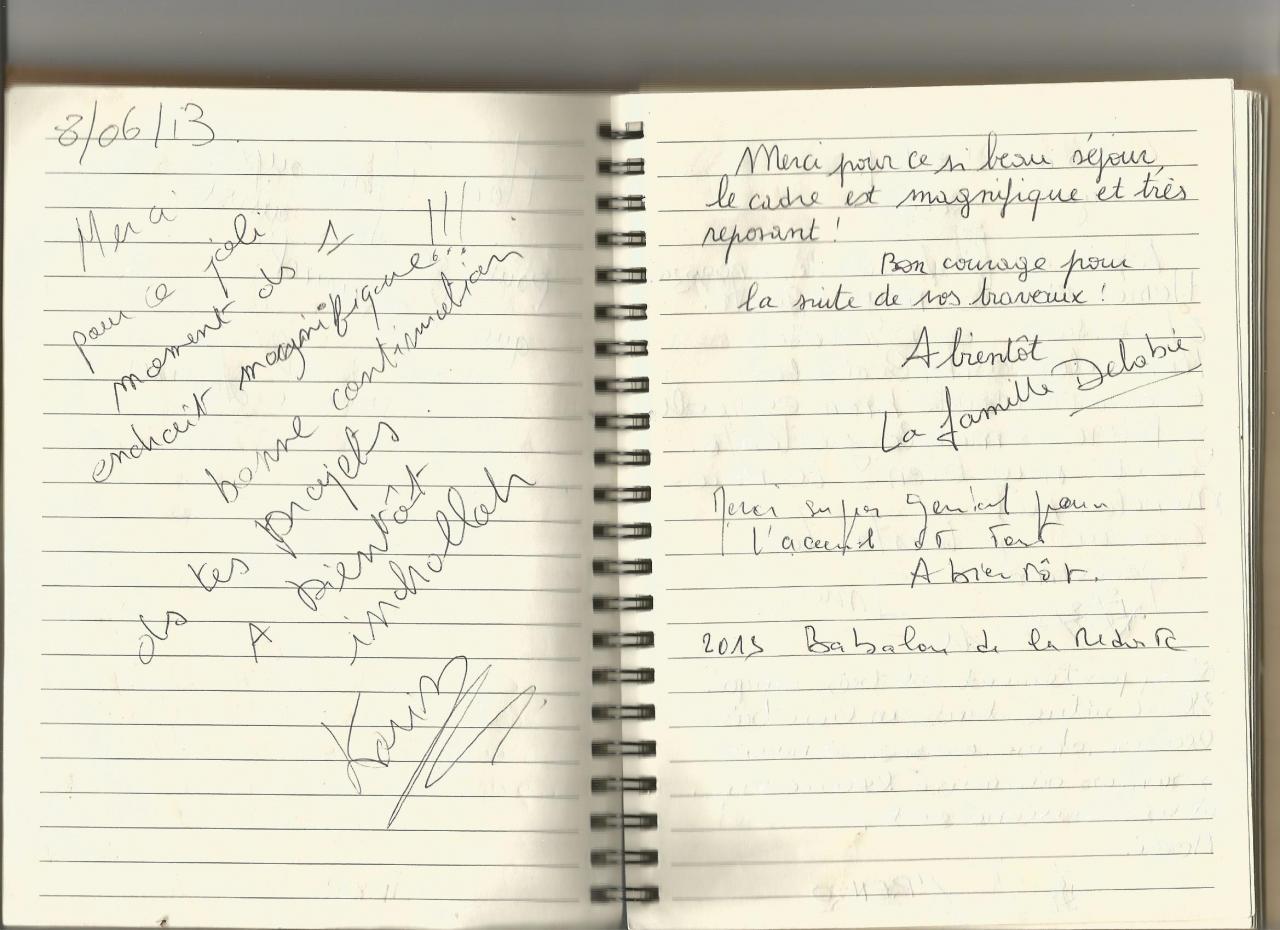 8/06/13
Merci
pour ce joli
moment ds 1
endroit magnifique..!!!
bonne continuation
ds tes projets
A bientôt
inchallah
Merci pour ce si beau séjour,
le cadre est magnifique et très
reposant !
Bon courage pour
la suite de vos travaux !
A bientôt
La famille Delobie
Merci super genial pour
l'acceuil et tout
A bientôt.
2013 Babalou de la Redoute